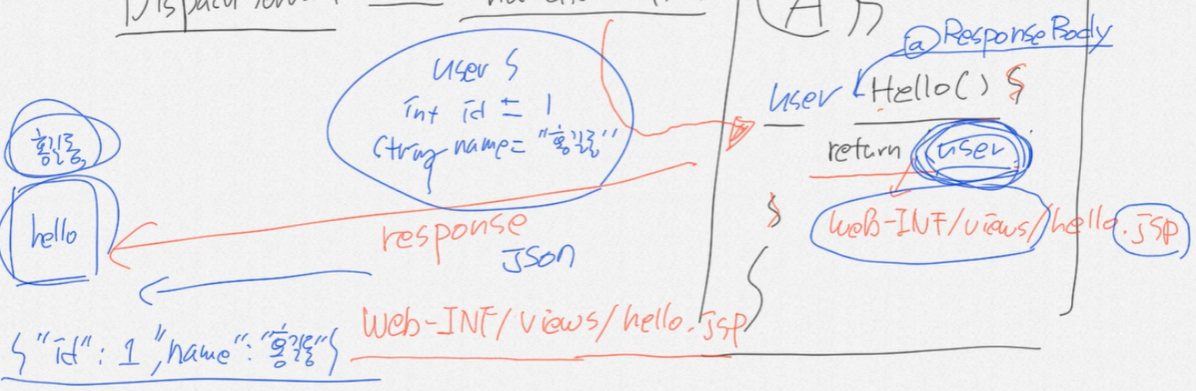 @ResponseBody
user {
int id = 1
String name = "홍길동"
홍길동
hello
user Hello() {
return user
}
WEB-INF/views/hello.jsp
response
JSON
WEB-INF/views/hello.jsp
{"id": 1,"name": "홍길동"}